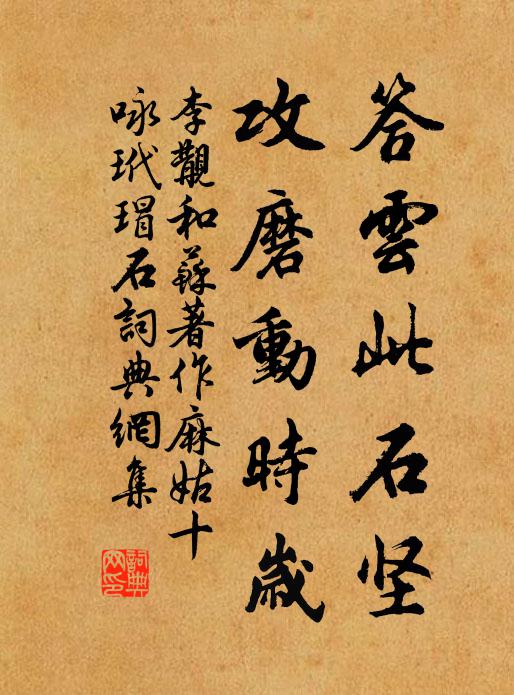 答雲此石坚
攻磨動時歲
李覯和蘇著作麻姑十
咏玳瑁石詞典網集
詞典網印